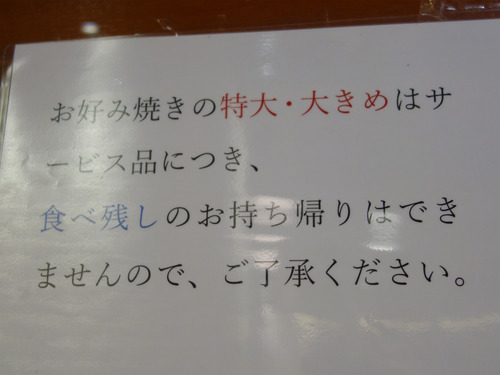 お好み焼きの特大・大きめはサ
ービス品につき、
食べ残しのお持ち帰りはでき
ませんので、ご了承ください。